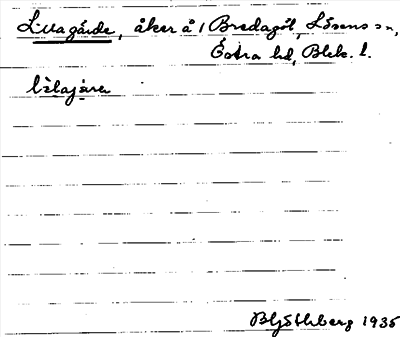 Lillagärde, åker å 1 Bredagöl, Lösens sn,
Östra hd, Blek. l.
lìlajæra
1935